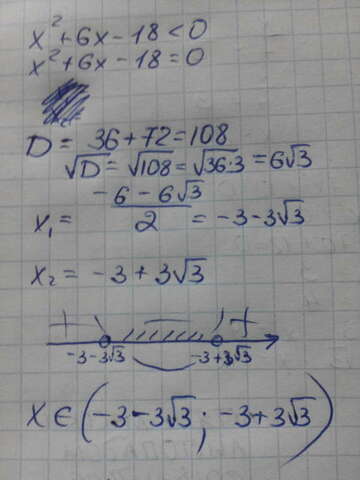 x² + 6x - 18 < 0
x² + 6x - 18 = 0
D = 36 + 72 = 108
√D = √108 = √36·3 = 6√3
x₁ = (-6 - 6√3)/2 = -3 - 3√3
x₂ = -3 + 3√3
+ — +
-3-3√3 -3+3√3
x ∈ (-3 - 3√3 ; -3 + 3√3)